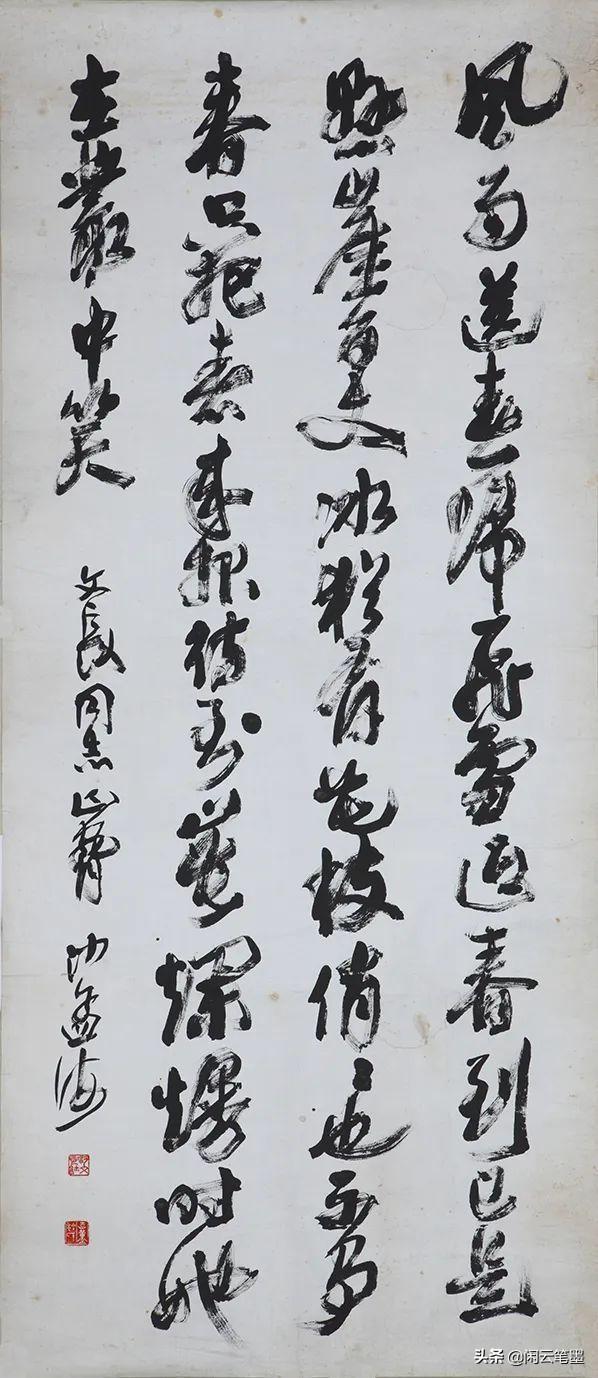 風雨送春歸飛雪迎春到已是
懸崖百丈冰猶有花枝俏〻也不爭
春只把春來報待到山花爛熳時她
在叢中笑
文長同志正 沙孟海
头条 @闲云笔墨